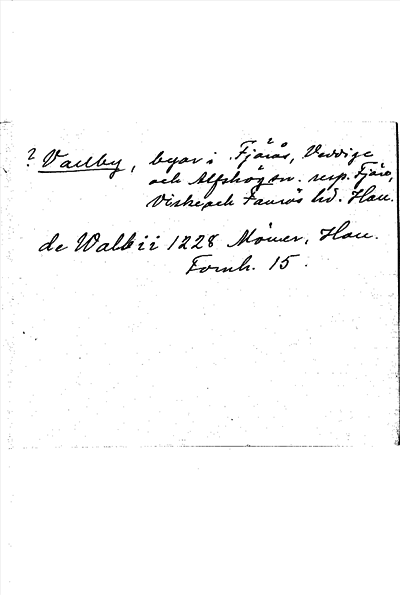 ? Vallby, byar i Fjärås, Veddige
och Alfshög sn. resp. Fjäre,
Viske och Faurås hd. Hall.
de Walbii 1228 Mömer, Hall.
Fornh. 15.